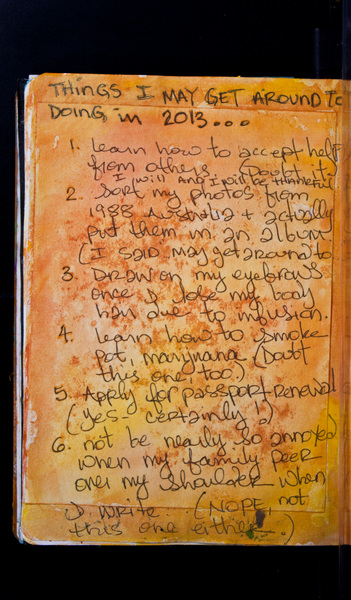 THINGS I MAY GET AROUND TO
DOING in 2013...
1. Learn how to accept help
from others (Doubt it)
I will and I will be thankful
2. Sort my photos from
1988 Australia + actually
put them in an album
(I said may get around to)
3. Draw on my eyebrows
once I lose my body
hair due to infusion.
4. Learn how to smoke
pot, marijuana (Doubt
this one, too.)
5. Apply for passport renewal
(yes - certainly!)
6. not be nearly so annoyed
when my family peer
over my shoulder when
I write (NOPE, not
this one either.)